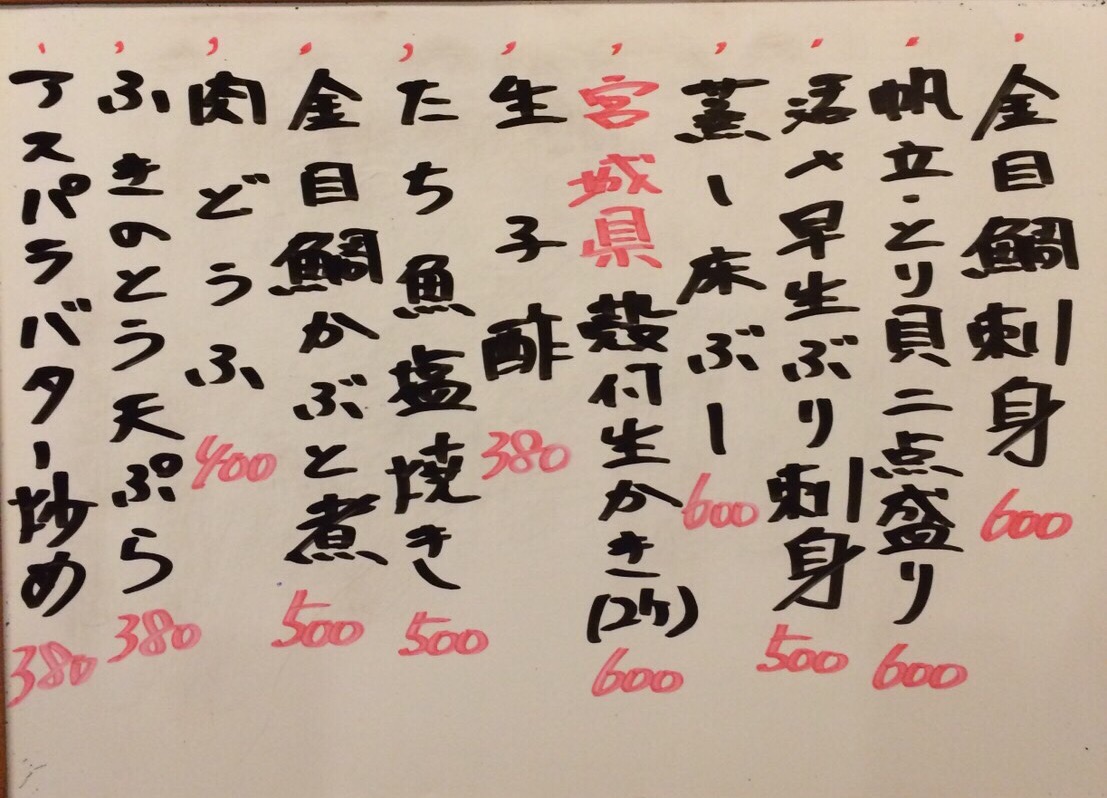 金目鯛刺身 600
帆立・とり貝二点盛り 600
活〆早生ぶり刺身 500
蒸し床ぶし 600
宮城県 殻付生かき(2ケ) 600
生子酢 380
たち魚塩焼き 500
金目鯛かぶと煮 500
肉どうふ 400
ふきのとう天ぷら 380
アスパラバター炒め 380